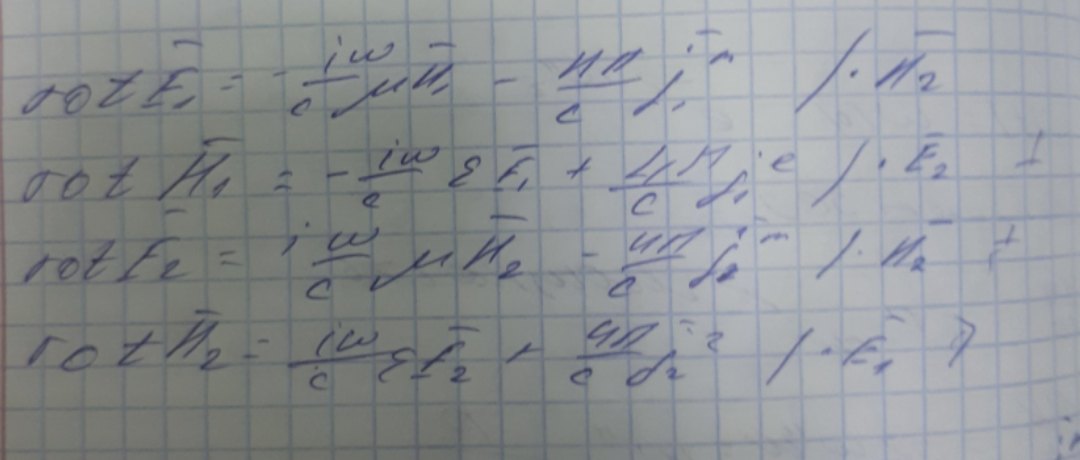 rot Ē₁ = - iω/c μH̄₁ - 4π/c j̄₁ᵐ /· H̄₂
rot H̄₁ = - iω/c εĒ₁ + 4π/c j̄₁ᵉ /· Ē₂ +
rot Ē₂ = i ω/c μH̄₂ - 4π/c j̄₂ᵐ /· H̄₂ +
rot H̄₂ = iω/c εĒ₂ + 4π/c j̄₂ /· Ē₁